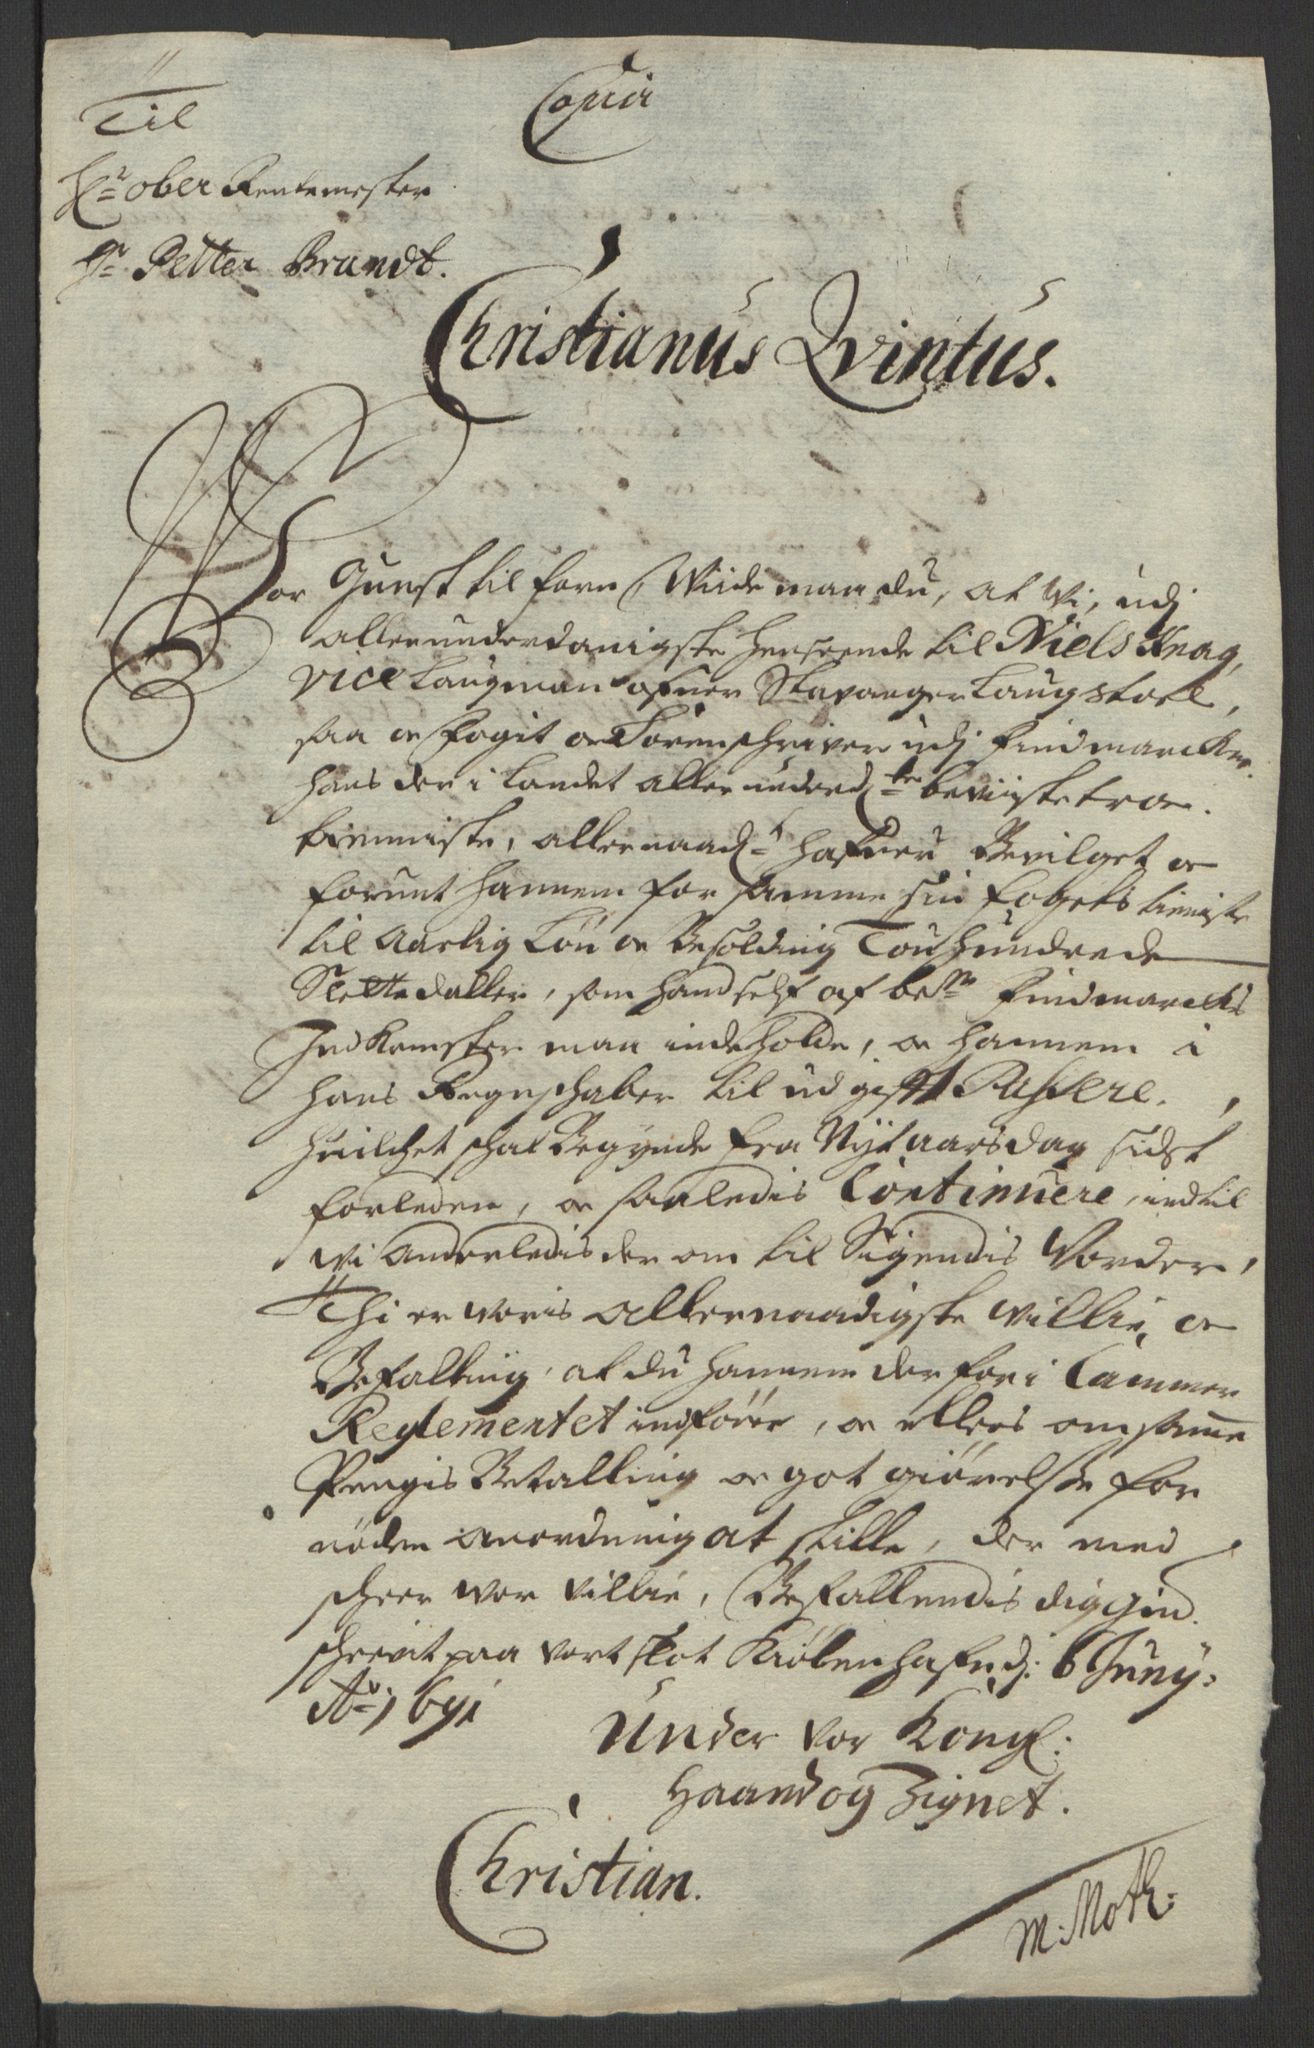 Copia
Til
Hr ober Rentemester
Hr Petter Brandt.
Christianus Qvintus.
Vor Gunst til forn, Wiide maa du, at Wi, udj
allerunderdanigste henseende til Niels Knag,
vice Laugmand ofuer Stavanger Laugstoel,
saa oc Fogit oc Sorenschriver udj Findmarcken
hans der i Landet allerunderd:te beviiste troe
tienniste, allernaad:t hafuer Bevilget oc
forunt hannem for samme sin fogets tieniste
til Aarlig Løn oc Besolding Tou hundrede
Slettedaller, som hand self af be:te Findmarckens
Indkomster maa indeholde, oc hannem i
hans Regnschaber til udgift Passere.
huilchet schal Begynde fra Nytaarsdag sidst
forleden, oc saaledis Continuere, indtil
Wi Anderledis der om til Sigendis Vorder,
Thi er voris allernaadigste Willie, oc
Befalling, at du hannem derfor i Cammer
Reglementet indfører, oc ellers om samme
Pengis Betalling oc got giørelse for
nøden anordning at stille, der med
scheer vor Villie, Befallendis dig Gud.
schrevit paa vort slot Kiøbenhafn d: 6 Juny:
Ao 1691
Under Vor Kongl:
Haand og Zignet.
Christian.
M: Moth: